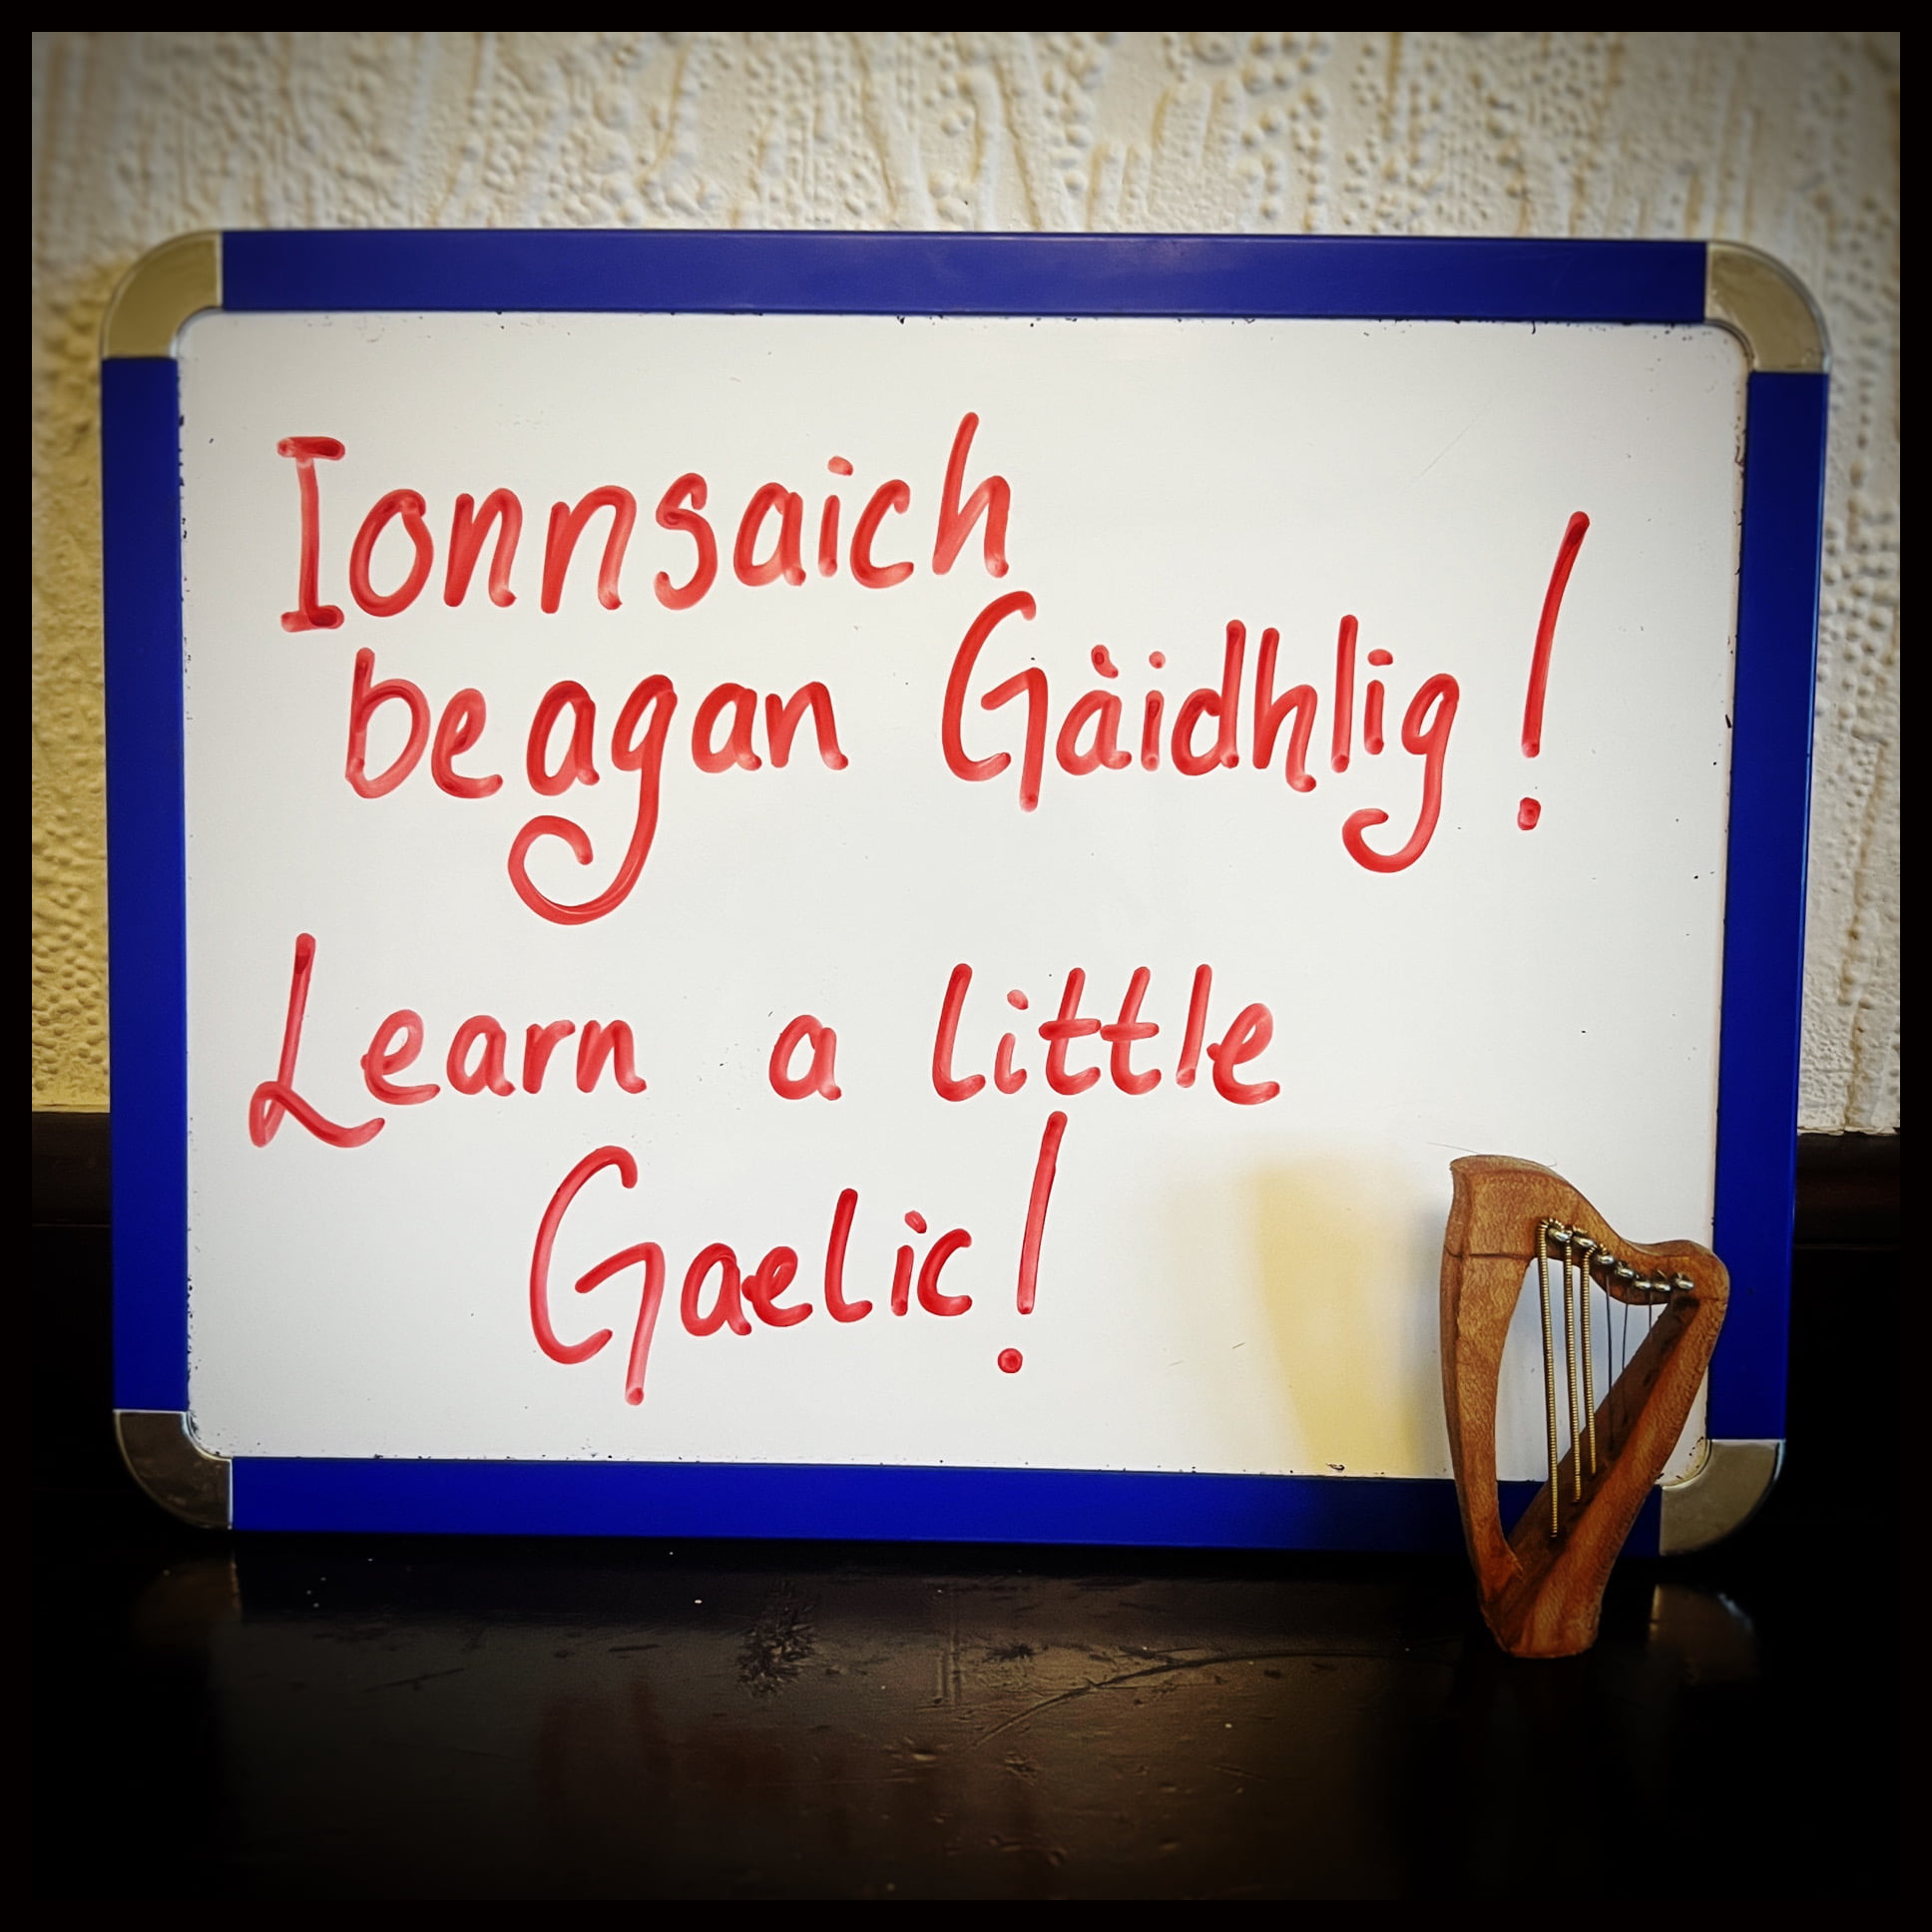 Ionnsaich
beagan Gàidhlig!
Learn a little
Gaelic!